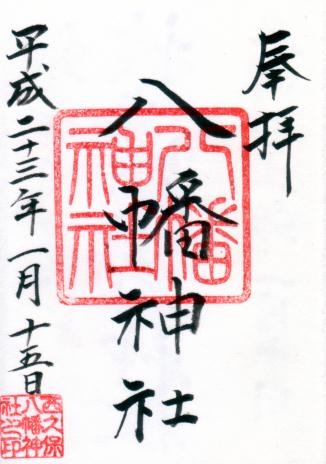 奉拝
八幡神社
八幡神社
平成二十三年一月十五日
西久保
八幡神
社之印